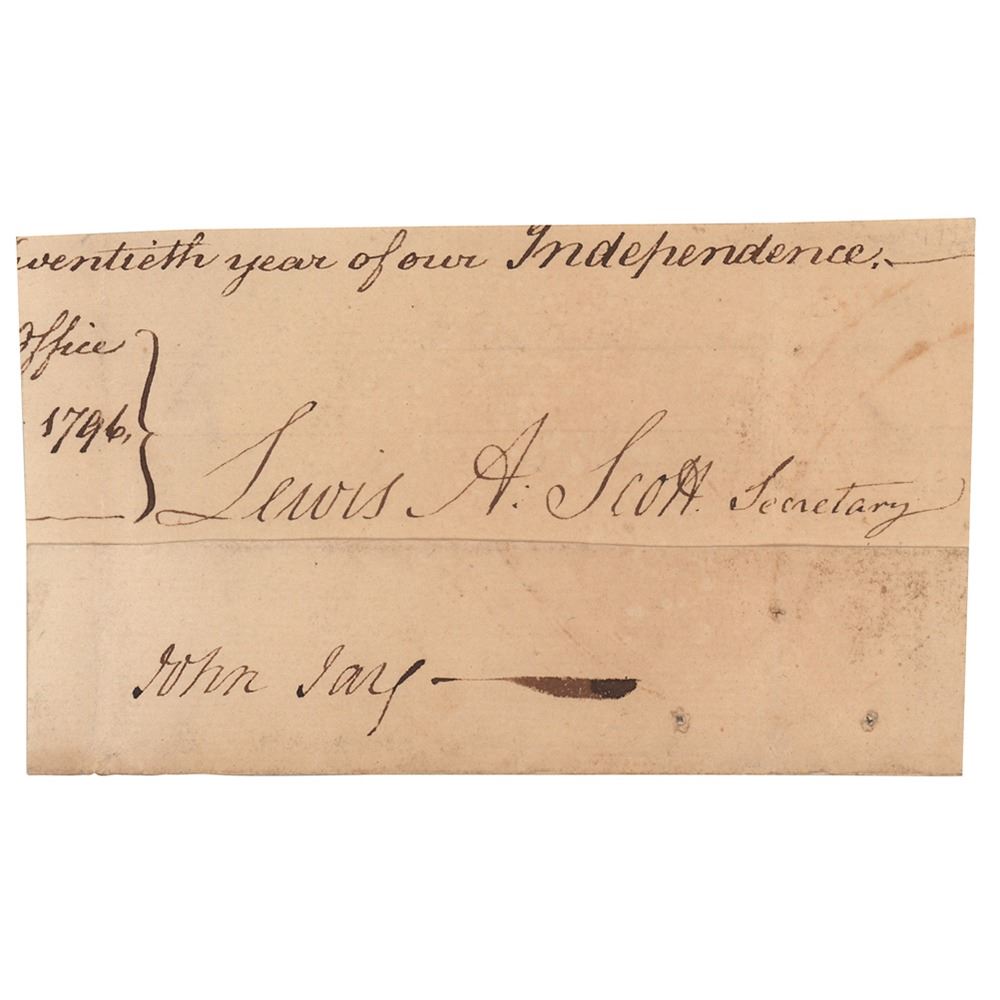 wentieth year of our Independence.
Office
1796.
Lewis A: Scott Secretary
John Jay